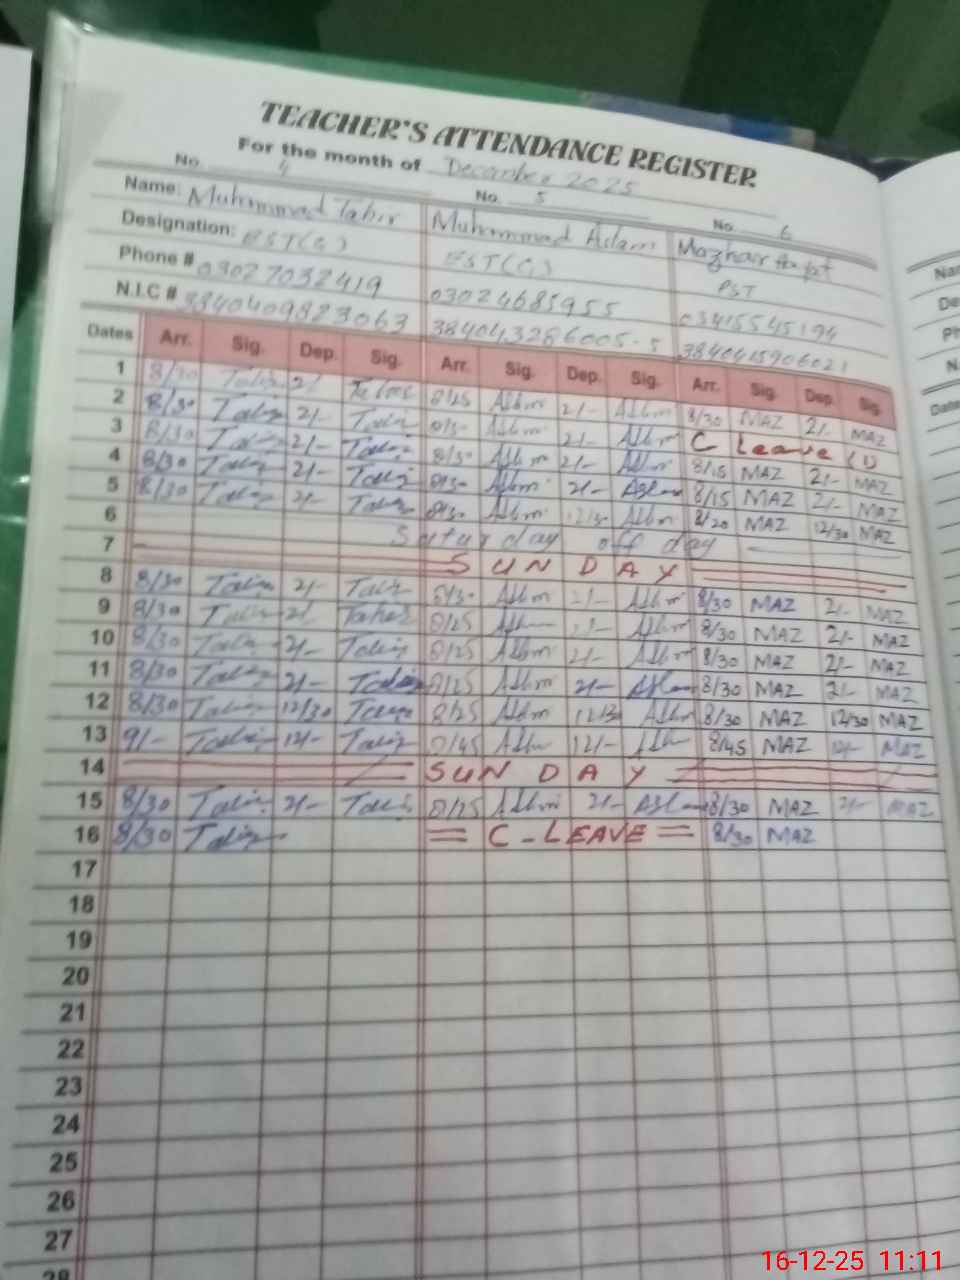 TEACHER'S ATTENDANCE REGISTER
For the month of December 2025
No. 4 No. 5 No. 6
Name: Muhammad Tahir Muhammad Aslam Mazhar
Designation: EST(G) EST(G) PST
Phone # 03027032419 03024685955 03415545194
N.I.C # 3840409823063 3840413286005-5 3840415906021
Dates Arr. Sig. Dep. Sig. Arr. Sig. Dep. Sig. Arr. Sig. Dep. Sig.
1 8/30 Tahir 2/- Tahir 8/25 Aslam 2/- Aslam 8/30 MAZ 2/- MAZ
2 8/30 Tahir 2/- Tahir 8/30 Aslam 2/- Aslam C Leave (1)
3 8/30 Tahir 2/- Tahir 8/30 Aslam 2/- Aslam 8/15 MAZ 2/- MAZ
4 8/30 Tahir 2/- Tahir 8/30 Aslam 2/- Aslam 8/15 MAZ 2/- MAZ
5 8/30 Tahir 2/- Tahir 8/30 Aslam 12/30 Aslam 8/20 MAZ 12/30 MAZ
6 Saturday off day
7 SUNDAY
8 8/30 Tahir 2/- Tahir 8/30 Aslam 2/- Aslam 8/30 MAZ 2/- MAZ
9 8/30 Tahir 2/- Taher 8/25 Aslam 2/- Aslam 8/30 MAZ 2/- MAZ
10 8/30 Tahir 2/- Tahir 8/25 Aslam 2/- Aslam 8/30 MAZ 2/- MAZ
11 8/30 Tahir 2/- Tahir 8/25 Aslam 2/- Aslam 8/30 MAZ 2/- MAZ
12 8/30 Tahir 12/30 Tahir 8/25 Aslam 12/30 Aslam 8/30 MAZ 12/30 MAZ
13 9/- Tahir 12/- Tahir 8/45 Aslam 12/- Aslam 8/45 MAZ 12/- MAZ
14 SUNDAY
15 8/30 Tahir 2/- Tahir 8/25 Aslam 2/- Aslam 8/30 MAZ 2/- MAZ
16 8/30 Tahir = C-LEAVE = 8/30 MAZ
17
18
19
20
21
22
23
24
25
26
27
28
16-12-25 11:11